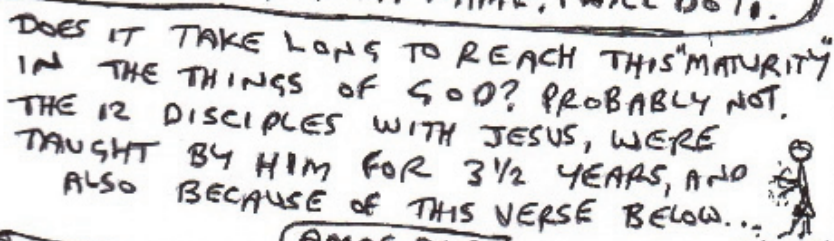 DO IT.
DOES IT TAKE LONG TO REACH THIS "MATURITY"
IN THE THINGS OF GOD? PROBABLY NOT.
THE 12 DISCIPLES WITH JESUS, WERE
TAUGHT BY HIM FOR 3½ YEARS, AND
ALSO BECAUSE OF THIS VERSE BELOW...